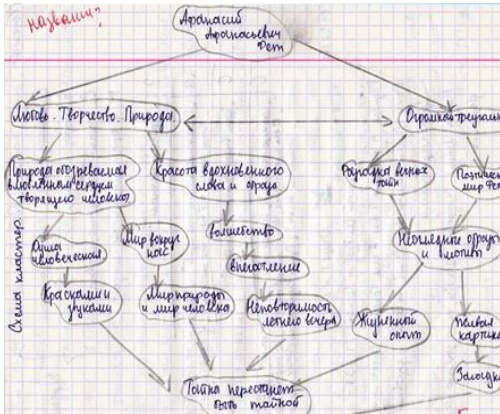 названия?
Афанасий
Афанасьевич
Фет
Любовь. Творчество. Природа.
Огромная
Природа
влюблённым сердцем
творящего человека
Красота вдохновенного
слова и
Разгадка вечных
тайн
мир Фе
Душа
человеческая
Мир вокруг
нас
волшебство
Неоглядные
и
впечатление
Красками и
звуками
Мир природы
и мир человека
Неповторимость
летнего вечера
Жизненный
опыт
Живая
картина
Загадка
Тайна перестанет
быть тайной
Схема кластер.